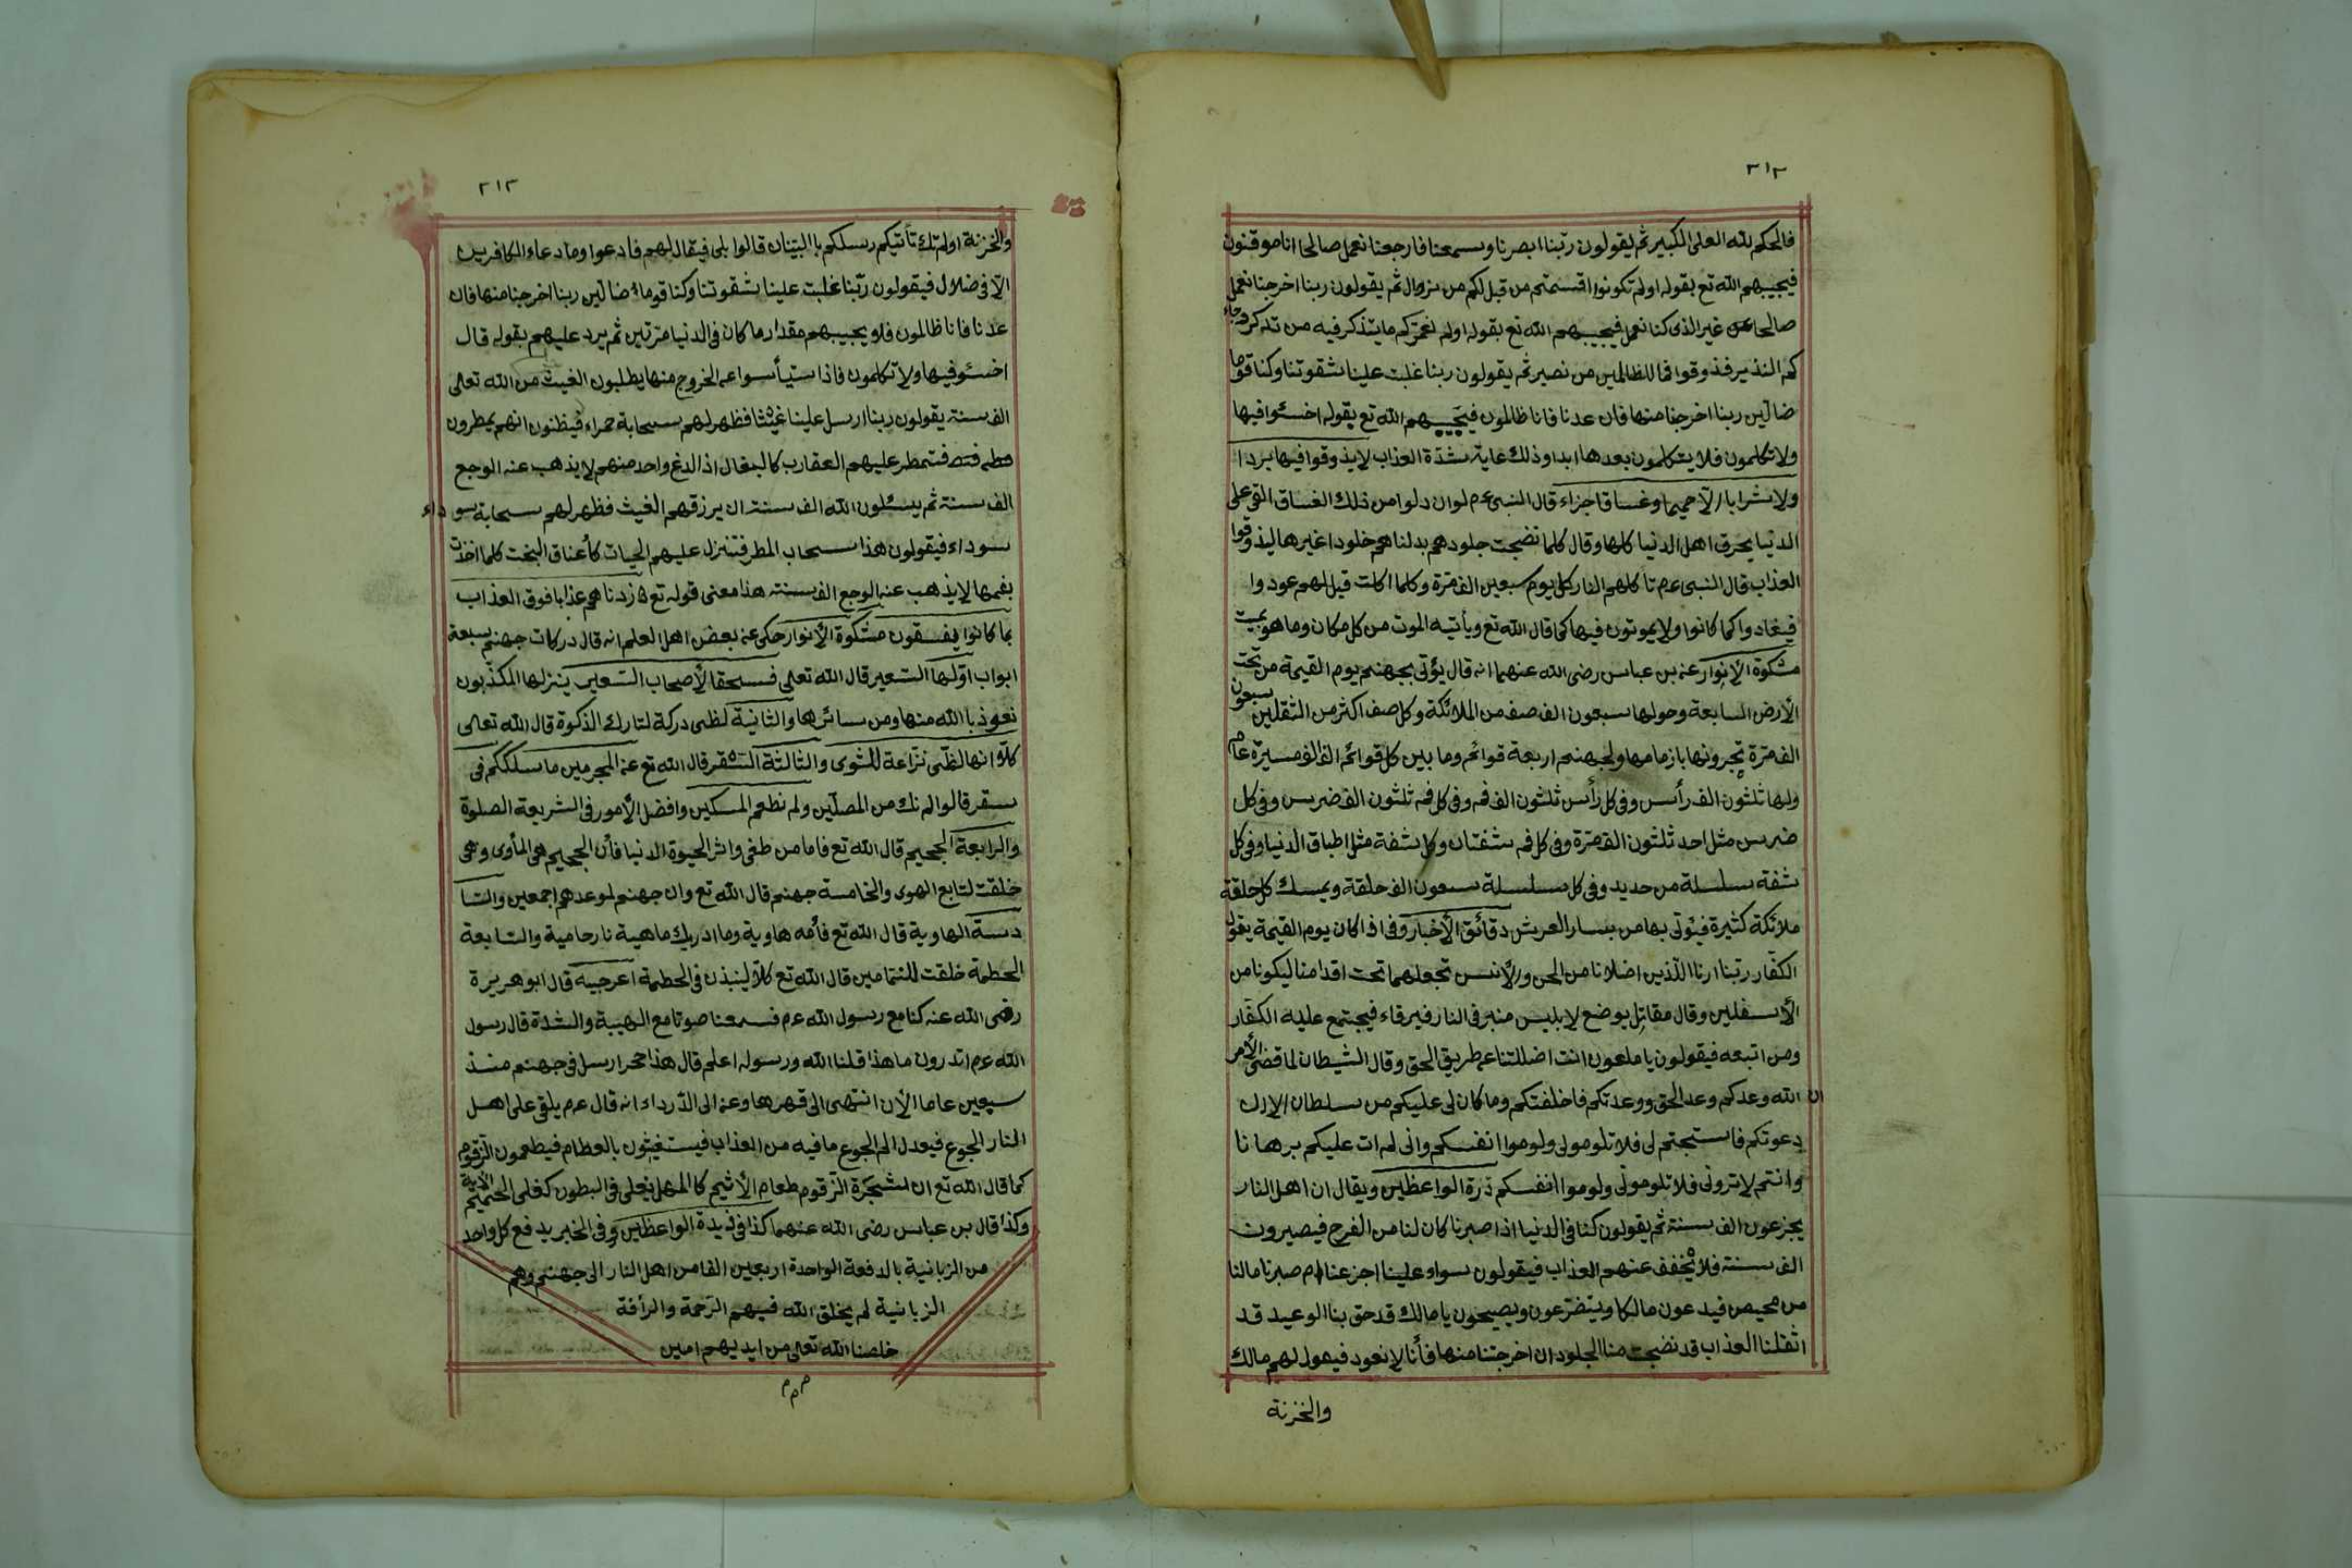 ٣١٢
فالحكم لله العلى الكبير ثم يقولون ربّنا ابصرنا وسمعنا فارجعنا نعمل صالحا انا موقنون
فيجيبهم الله تع بقوله اولم تكونوا اقسمتم من قبل لكم من زوال ثم يقولون ربنا اخرجنا نعمل
صالحا غير الذى كنا نعمل فيجيبهم الله تع بقوله اولم نعمركم ما يتذكر فيه من تذكر وجاء
كم النذير فذوقوا فما للظالمين من نصير ثم يقولون ربنا غلبت علينا شقوتنا وكنا قوما
ضالّين ربنا اخرجنا منها فان عدنا فانا ظالمون فيجيبهم الله تع بقوله اخسئوا فيها
ولا تكلمون فلا يتكلمون بعدها ابدا وذلك غاية شدّة العذاب لا يذوقوا فيها بردا
ولا شرابا الّا حميما وغساقا جزاء قال النبى عم لو ان دلوا من ذلك الغساق القى على
الدنيا يحرق اهل الدنيا كلها وقال كلما نضجت جلودهم بدلناهم خلودا غيرها ليذوقوا
العذاب قال النبى عم تأكلهم النار كل يوم سبعين الف مرّة وكلما اكلت قيل لهم عودوا
فيعادوا كما كانوا ولا يموتون فيها كما قال الله تع ويأتيه الموت من كل مكان وما هو بميت
مشكوة الأنوار عن بن عباس رضى الله عنهما انه قال يؤتى بجهنم يوم القيمة من تحت
الأرض السابعة وحولها سبعون الف صف من الملائكة وكل صف اكثر من الثقلين سبعون
الف مرّة يجرونها بازمامها ولجهنم اربعة قوائم وما بين كل قوائم الف الف مسيرة عام
ولها ثلثون الف رأس وفى كل رأس ثلثون الف فم وفى كل فم ثلثون الف ضرس وفى كل
ضرس مثل احد ثلثون الف مرّة وفى كل فم شفتان وكل شفة مثل اطباق الدنيا وفى كل
شفة سلسلة من حديد وفى كل سلسلة سبعون الف حلقة ويمسك كل حلقة
ملائكة كثيرة فيؤتى بها من يسار العرش دقائق الأخبار وفى اذا كان يوم القيمة يقول
الكفّار ربّنا ارنا الّذين اضلانا من الجن والأنس نجعلهما تحت اقدامنا ليكونا من
الأسفلين وقال مقاتل يوضع لابليس منبر فى النار فيرقاء فيجتمع عليه الكفّار
ومن اتبعه فيقولون يا ملعون انت اضللتنا عن طريق الحق وقال الشيطان لما قضى الأمر
ان الله وعدكم وعد الحق ووعدتكم فاخلفتكم وما كان لى عليكم من سلطان الا ان
دعوتكم فاستجبتم لى فلا تلومونى ولوموا انفسكم وانى لم ات عليكم برهانا
وانتم لا ترونى فلا تلومونى ولوموا انفسكم درة الواعظين ويقال ان اهل النار
يجزعون الف سنة ثم يقولون كنا فى الدنيا اذا صبرنا كان لنا من الفرح فيصيرون
الف سنة فلا يخفف عنهم العذاب فيقولون سواء علينا اجزعنا ام صبرنا ما لنا
من محيص فيدعون مالكا ويتضرعون ويصيحون يا مالك قد حق بنا الوعيد قد
اثقلنا العذاب قد نضجت منا الجلود ان اخرجتنا منها فأنا لا نعود فيقول لهم مالك
والخزنة
٣١٣
والخزنة اولم تك تأتيكم رسلكم با البيّنات قالوا بلى فيقال لهم فادعوا وما دعاء الكافرين
الّا فى ضلال فيقولون ربّنا غلبت علينا شقوتنا وكنا قوما ضالّين ربنا اخرجنا منها فان
عدنا فانا ظالمون فلا يجيبهم مقدار ما كان فى الدنيا مرّتين ثم يرد عليهم بقوله قال
اخسئو فيها ولا تكلمون فاذا استيأسوا عن الخروج منها يطلبون الغيث من الله تعالى
الف سنة يقولون ربنا ارسل علينا غيثا فظهر لهم سحابة حمراء فيظنون انهم يمطرون
فتمطر عليهم العقارب كا لبغال اذا لدغ واحد منهم لا يذهب عنه الوجع
الف سنة ثم يسئلون الله الف سنة ان يرزقهم الغيث فظهر لهم سحابة سوداء
سوداء فيقولون هذا سحاب المطر فتنزل عليهم الحيات كأعناق البخت كلما اخذت
بفمها لا يذهب عنه الوجع الف سنة هذا معنى قوله تع زدناهم عذابا فوق العذاب
بما كانوا يفسقون مشكوة الأنوار حكى عن بعض اهل العلم انه قال دركات جهنم سبعة
ابواب اوّلها السّعير قال الله تعالى فسحقا لأصحاب السّعير ينزلها المكذّبون
نعوذ با الله منها ومن سائرها والثانية لظى دركة لتارك الذكوة قال الله تعالى
كلّا انها لظّى نزاعة للشوى والثالثة السّقر قال الله تع عن المجرمين ما سلككم فى
سقر قالوا لم نك من المصلّين ولم نطعم المسكين وافضل الأمور فى الشريعة الصلوة
والرابعة الجحيم قال الله تع فاما من طغى واثر الحيوة الدنيا فأن الجحيم هى المأوى وهى
خلقت لتابع الهوى والخامسة جهنم قال الله تع وان جهنم لموعدهم اجمعين والسّا
دسة الهاوية قال الله تع فأمه هاوية وما ادريك ماهية نار حامية والسّابعة
الحطمة خلقت للنمّامين قال الله تع كلّا لينبذن فى الحطمة اعرجية قال ابو هريرة
رضى الله عنه كنا مع رسول الله عم فسمعنا صوتا مع الهيبة والشدة قال رسول
الله عم اتدرون ما هذا قلنا الله ورسوله اعلم قال هذا حجر ارسل فى جهنم منذ
سبعين عاما الأن انتهى الى قهرها وعن ابى الدّرداء انه قال عم يلقى على اهل
النار الجوع فيعدل الم الجوع ما فيه من العذاب فيستغيثون بالعظام فيطعمون الزّقوم
كما قال الله تع ان شجرة الزّقوم طعام الأثيم كا المهل يغلى فى البطون كغلى الحميم الآية
وكذا قال بن عباس رضى الله عنهما كذا فى زبدة الواعظين وفى الخبر يدفع كل واحد
من الزبانية بالدفعة الواحدة اربعين الفا من اهل النار الى جهنم وهم
الزبانية لم يخلق الله فيهم الرّحمة والرأفة
خلصنا الله تعالى من ايديهم امين
م م م